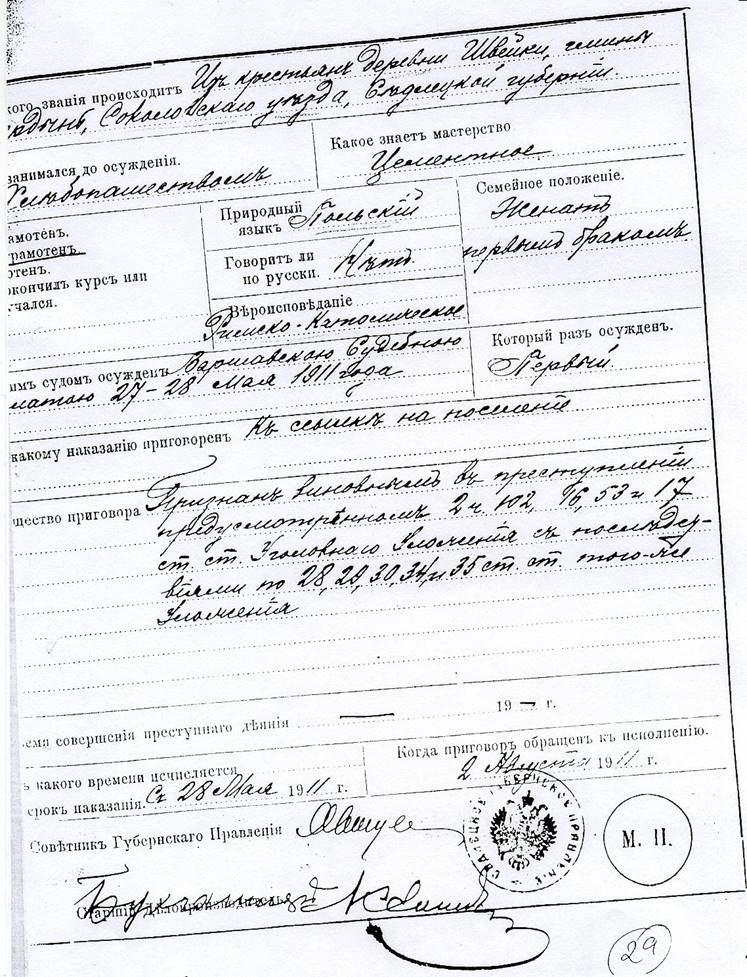 кого званія происходитъ Изъ крестьянъ деревни Швейки, гмины
Соколовскаго уѣзда, Сѣдлецкой губерніи.
занимался до осужденія.
Хлѣбопашествомъ
Какое знаетъ мастерство
Цементное
амотенъ.
грамотенъ.
отенъ.
окончилъ курсъ или
учался.
Природный
языкъ Польскій
Говоритъ ли
по русски. Нѣтъ
Вѣроисповѣданіе
Римско-Католическое
Семейное положеніе.
Женатъ
первымъ бракомъ
имъ судомъ осужденъ Варшавскою Судебною
латою 27-28 Мая 1911 года
Который разъ осужденъ.
Первый
какому наказанію приговоренъ Къ ссылкѣ на поселеніе
щество приговора Признанъ виновнымъ въ преступленіи
предусмотрѣнномъ 2 ч. 102, 16, 53 и 17
ст. ст. Уголовнаго Уложенія съ послѣдс-
віями по 28, 29, 30, 34, и 35 ст. ст. того-же
Уложенія
емя совершенія преступнаго дѣянія — 19 — г.
ъ какого времени исчисляется
срокъ наказанія. Съ 28 Мая 1911 г.
Когда приговоръ обращенъ къ исполненію.
2 Августа 1911 г.
Совѣтникъ Губернскаго Правленія
СѢДЛЕЦКОЕ ГУБЕРНСКОЕ ПРАВЛЕНІЕ
М. П.
Старшій Дѣлопроизводитель
Бухгалтеръ
29